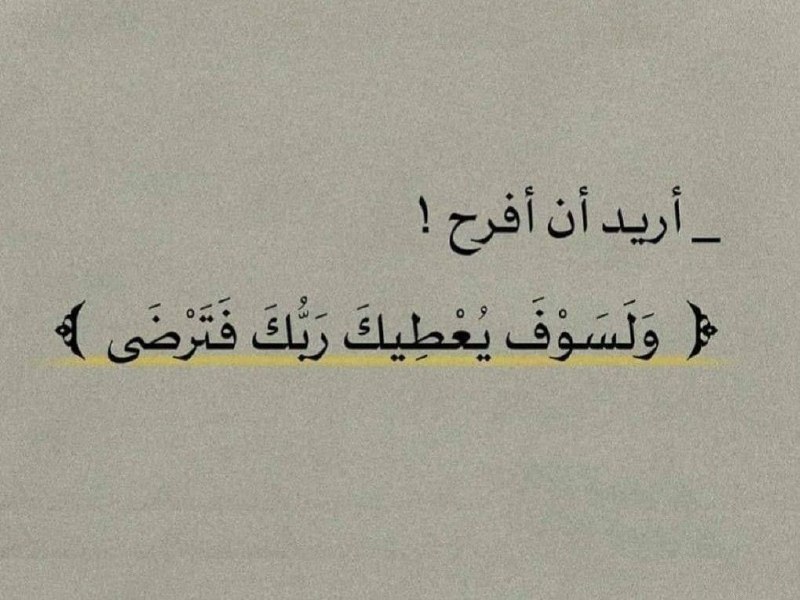 _ أريد أن أفرح !
﴿ وَلَسَوْفَ يُعْطِيكَ رَبُّكَ فَتَرْضَى ﴾